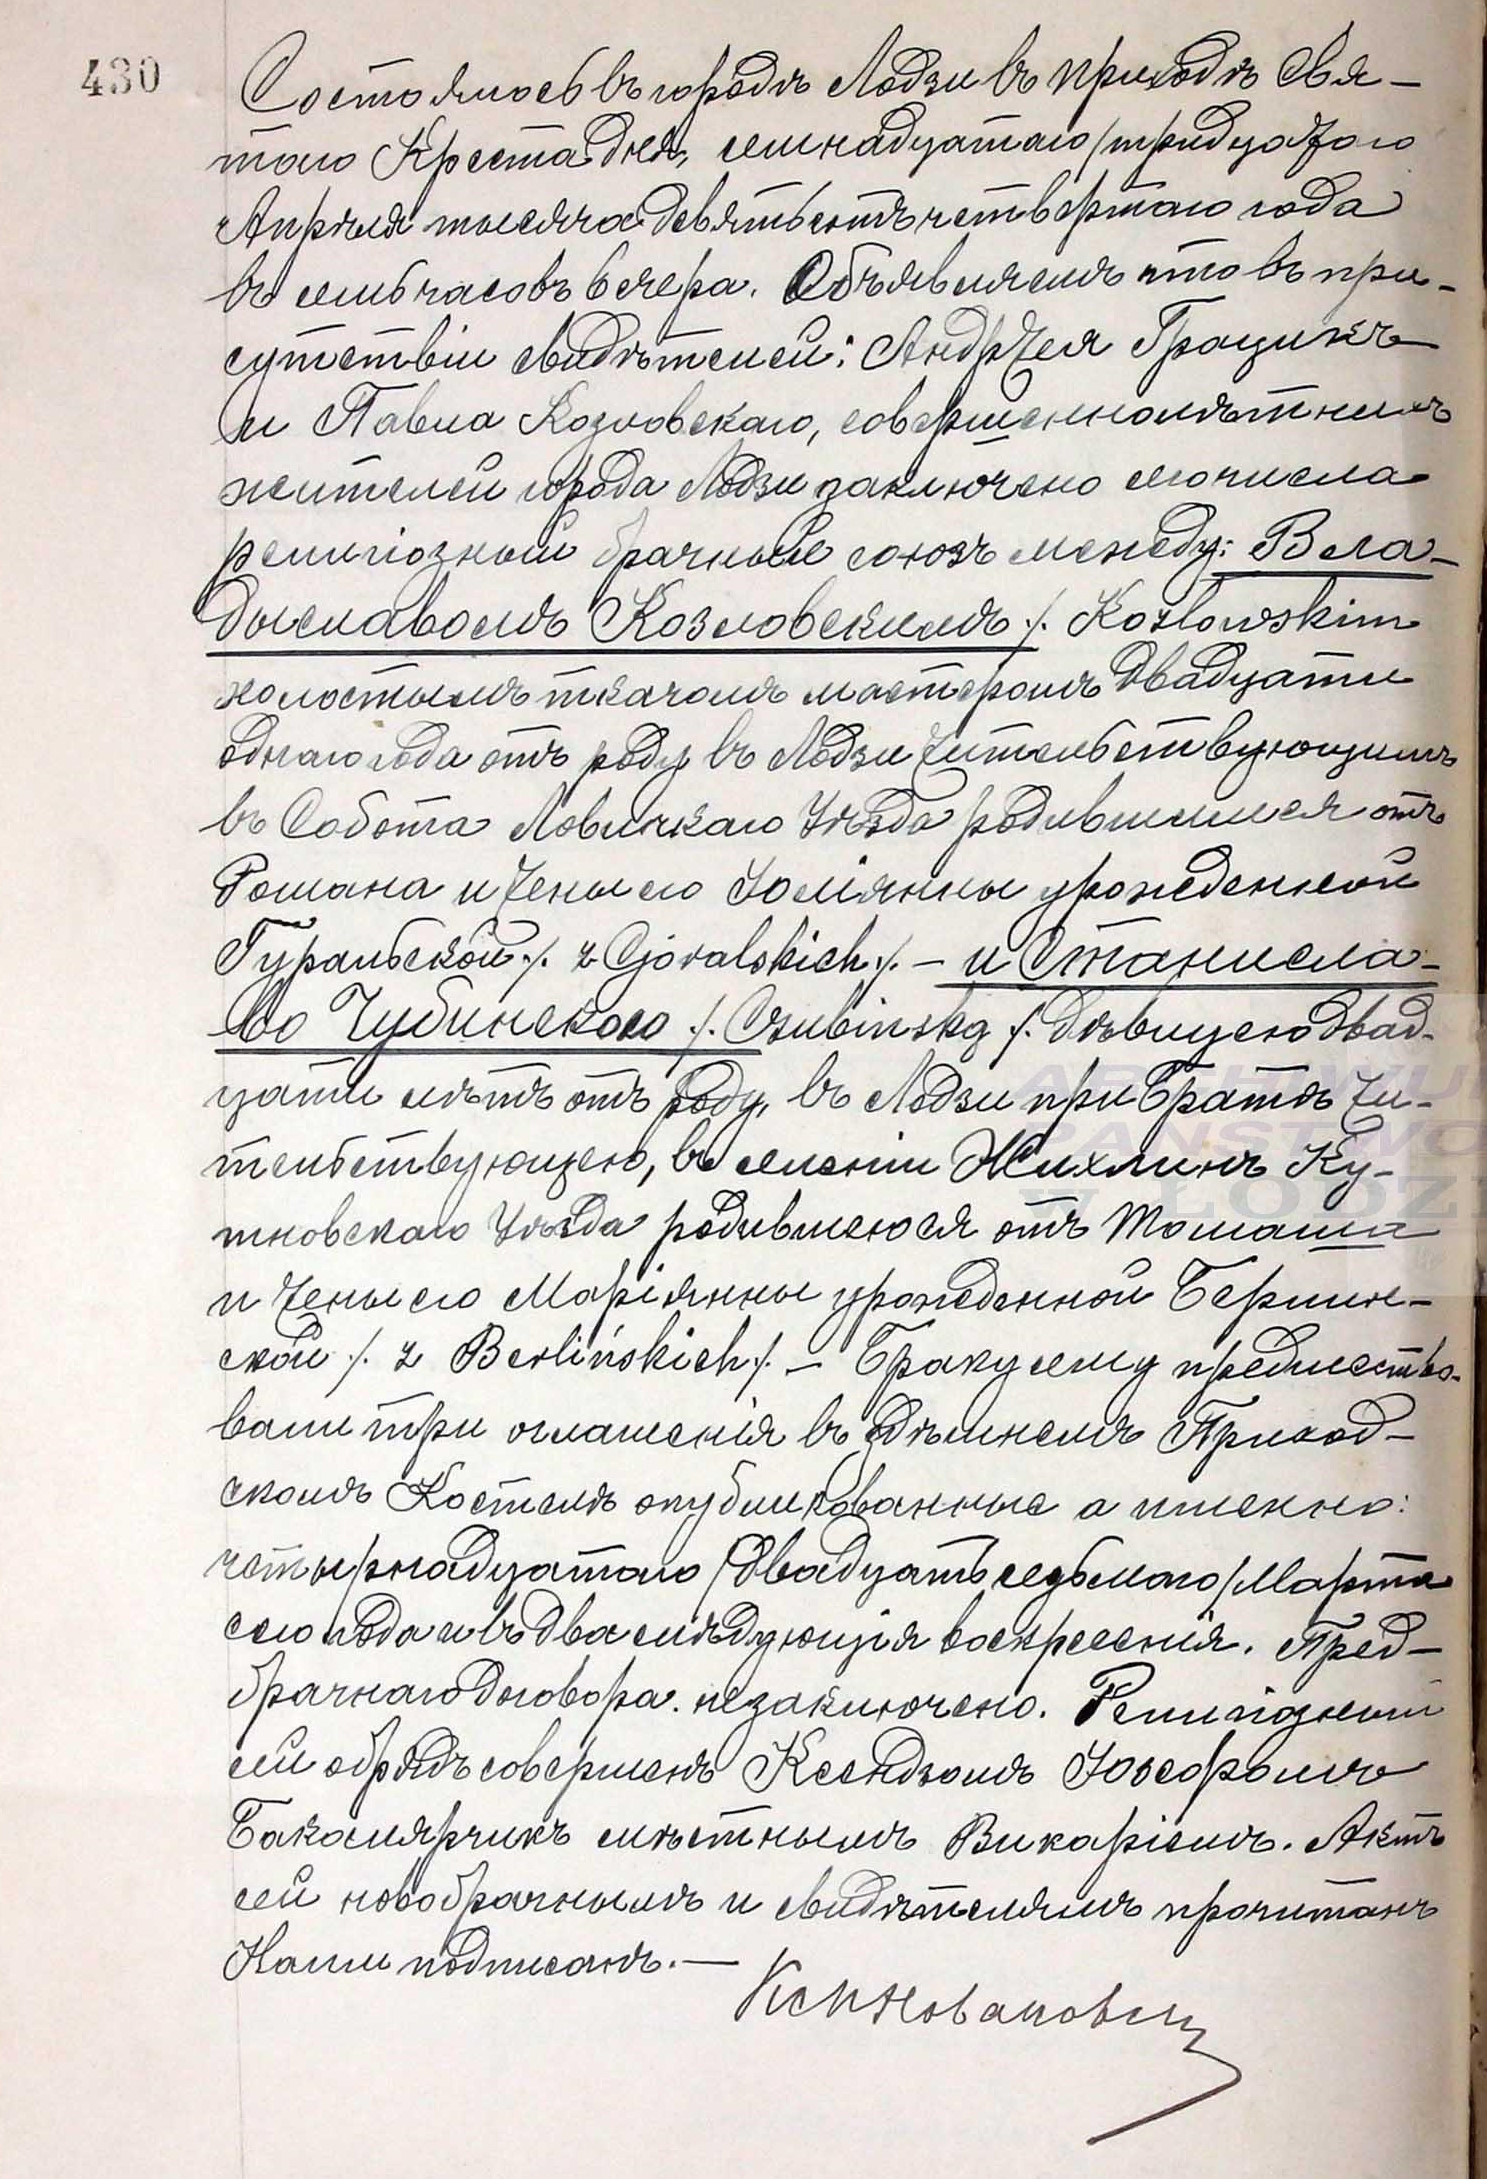 430
Состоялось въ городѣ Лодзи въ приходѣ Свя-
таго Креста дня, семнадцатаго /тридцатаго
Апрѣля тысяча девятьсотъ четвертаго года
въ семь часовъ вечера. Объявляемъ что въ при-
сутствіи свидѣтелей: Андрея Грацикъ
и Павла Козловскаго, совершеннолѣтнихъ
жителей города Лодзи заключено сего числа
религіозный брачный союзъ между: Вла-
дыславомъ Козловскимъ ./. Kozłowskim
холостымъ ткачомъ мастеромъ двадцати
однаго года отъ роду въ Лодзи жительствующимъ
въ Собота Ловичкаго Уѣзда родившимся отъ
Романа и жены его Юліянны урожденной
Гуральской ./. z Góralskich ./. — и Станисла-
вою Чубинскою ./. Czubinską ./. дѣвицею двад-
цати лѣтъ отъ роду, въ Лодзи при Братѣ жи-
тельствующею, въ имѣніи Жихлинъ Ку-
тновскаго Уѣзда родившеюся отъ Томаша
и жены его Маріянны урожденной Берлин-
ской ./. z Berlińskich ./. — Браку сему предшество-
вали три оглашенія въ здѣшнемъ Приход-
скомъ Костелѣ опубликованные а именно:
четырнадцатаго /двадцать седьмого/ Марта
сего года и въ два слѣдующія воскресенія. Пред-
брачнаго договора незаключено. Религіозный
сей обрядъ совершенъ Ксендзомъ Іозефомъ
Бакалярчикъ мѣстнымъ Викаріемъ. Актъ
сей новобрачнымъ и свидѣтелямъ прочитанъ
Нами подписанъ. —
ARCHIWU
PAŃSTWO
W ŁODZI